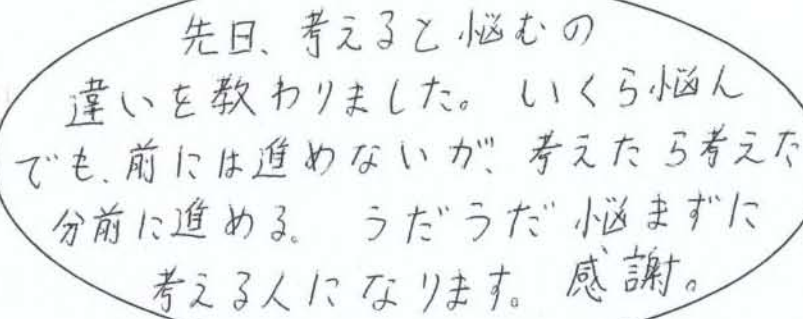 先日、考えると悩むの
違いを教わりました。いくら悩ん
でも、前には進めないが、考えたら考えた
分前に進める。うだうだ悩まずに
考える人になります。感謝。